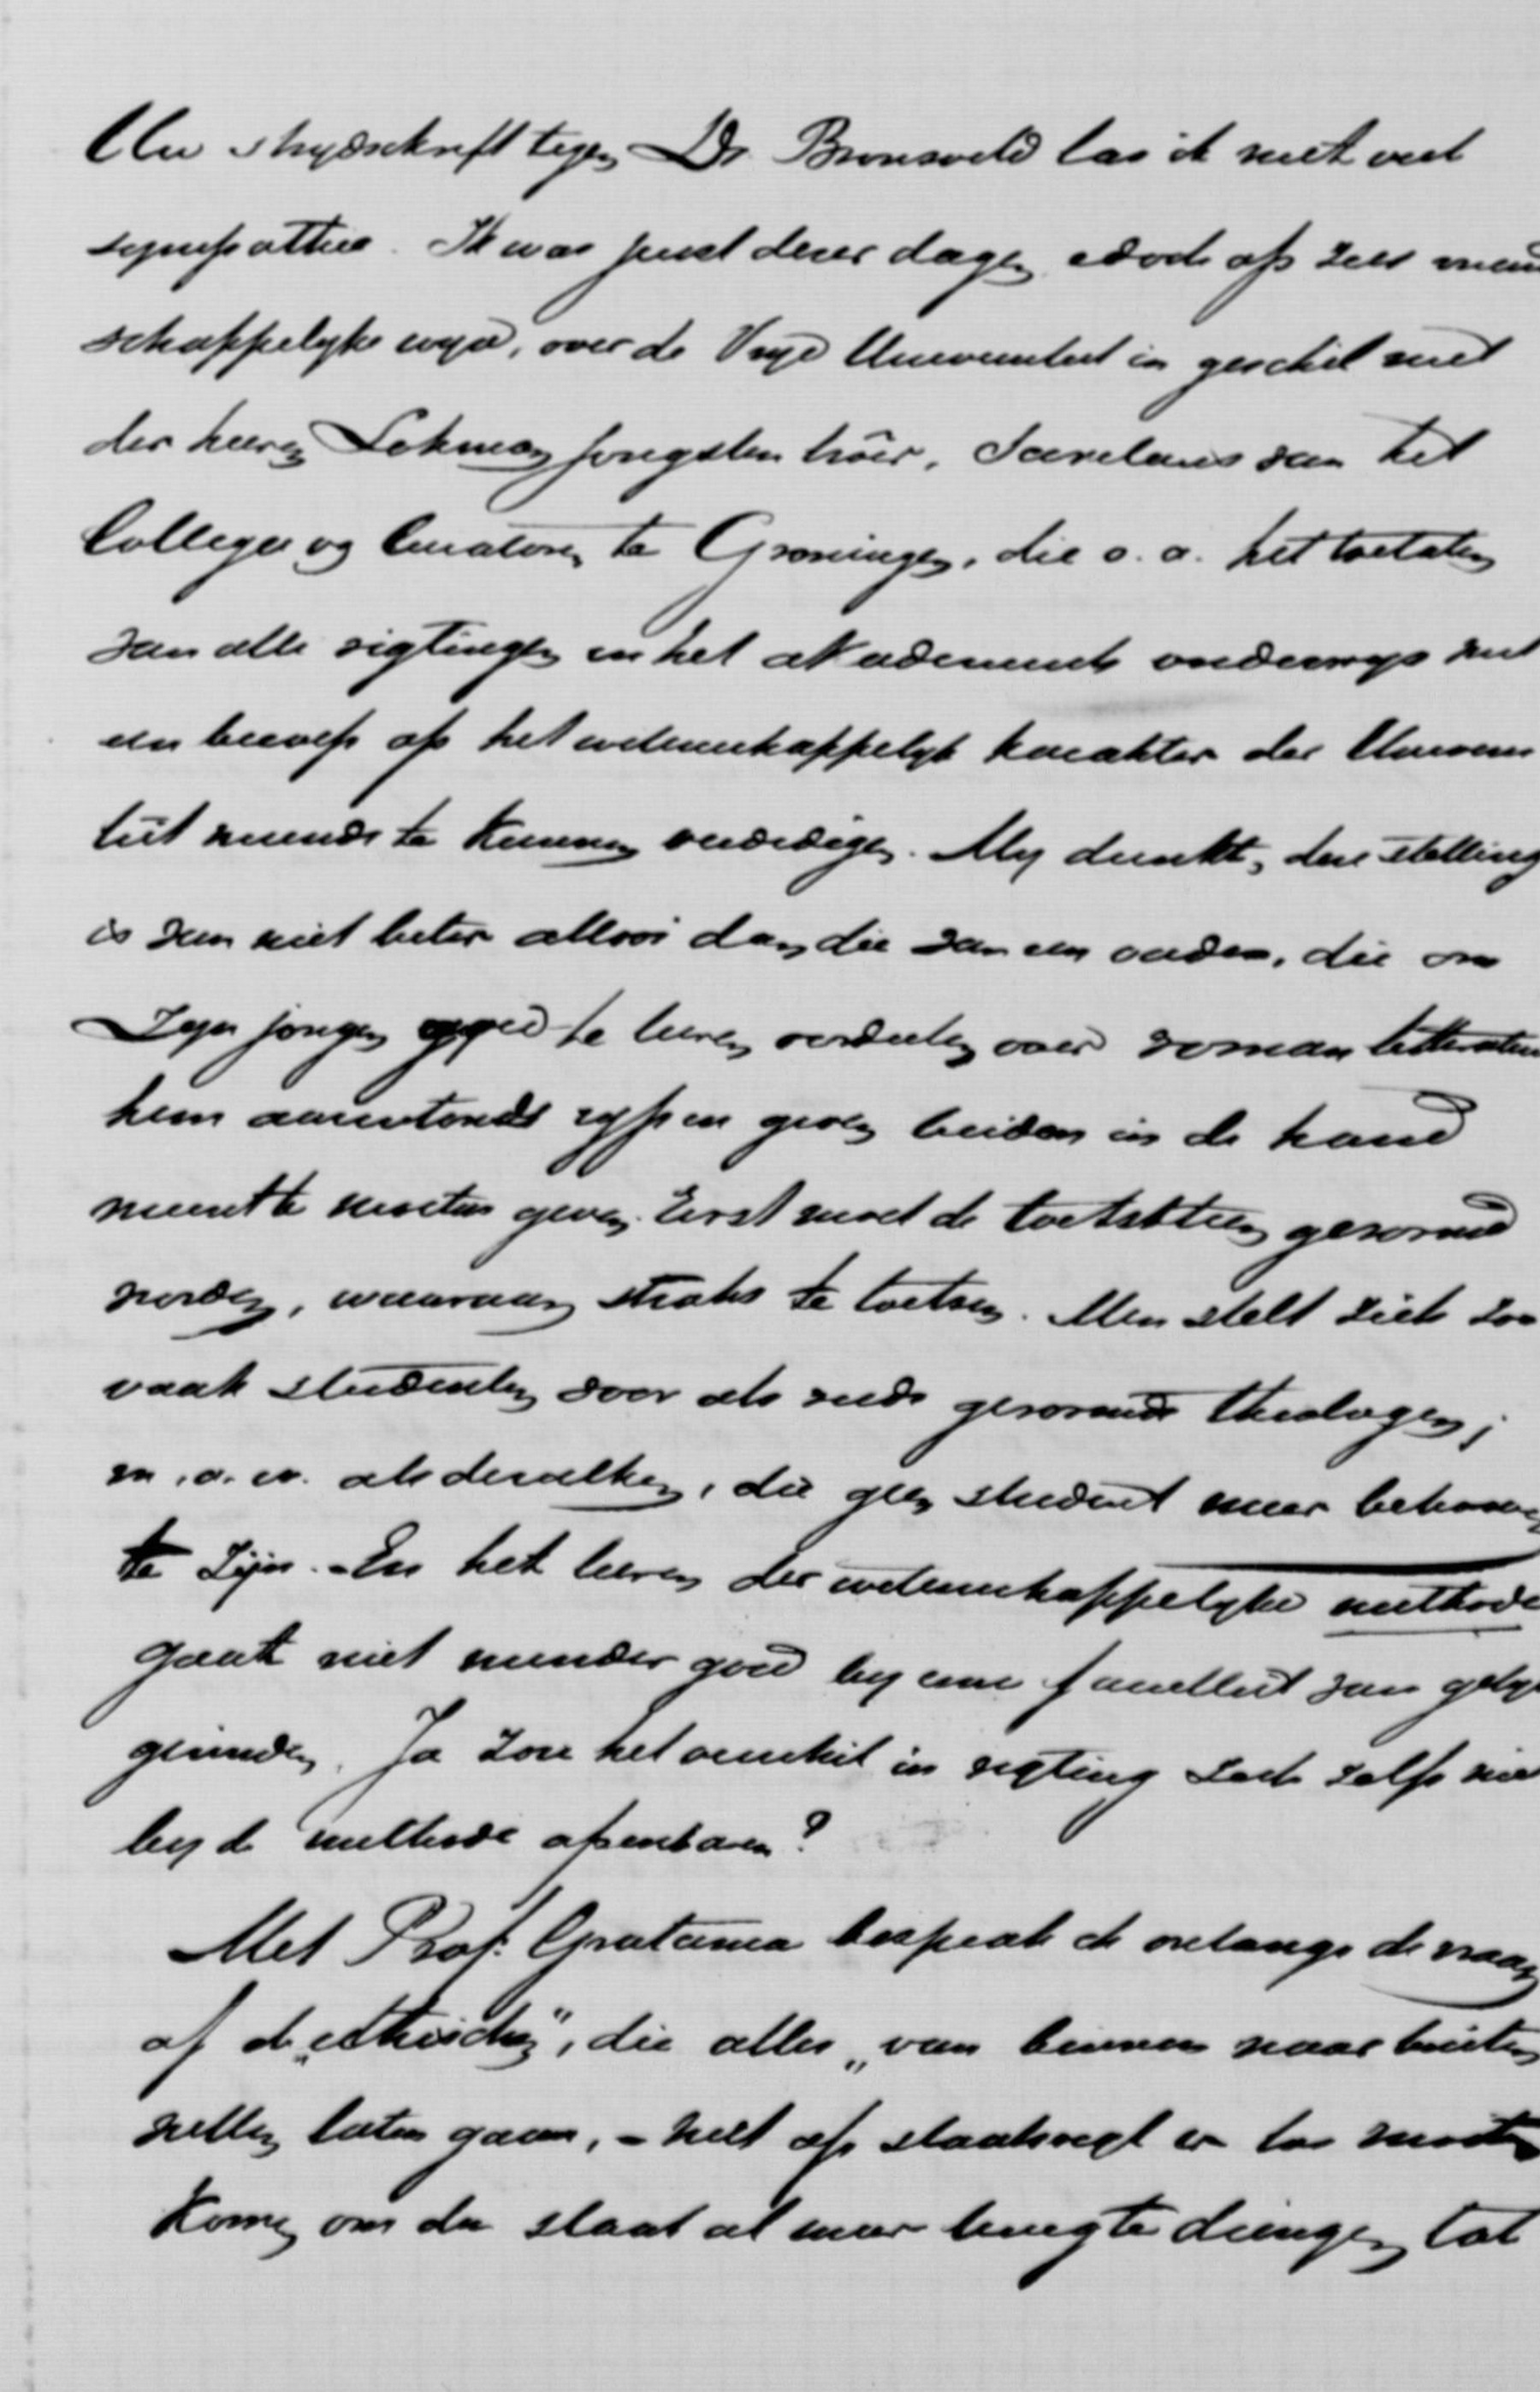 Uw strijdschrift tegen Dr. Bronsveld las ik met veel
sympathie. Ik was juist dezer dagen, ook op zeer
schappelijke wijs, over de Vrije Universiteit in geschil met
den heer Lohman jongsten broer, van het
College van Curatoren te Groningen, die o. a. het toelaten
van alle rigtingen in het akademisch onderwijs met
een beroep op het wetenschappelijk karakter der Univers
teit meende te kunnen verdedigen. Mij dunkt, deze stelling
is van niet beter allooi dan die van een vader, die om
Zijn jongen goed te leeren oordeelen over roman litteratuur
hem aanstonds rijp en groen beiden in de hand
meende te moeten geven. Eerst moet de toetssteen gevormd
worden, waaraan straks te toetsen. Men stelt zich zoo
vaak studenten voor als reeds gevormde theologen;
m. a. w. als dezulken, die geen student meer behoeven
te zijn. - En het leeren der wetenschappelijke methode
gaat niet minder goed bij eene faculteit van gelijk
gezinden. Ja zou het verschil in rigting zich zelfs niet
bij de methode openbaren?
Met Prof. Gratama besprak ik onlangs de vraag
of de „ethischen", die alles „van binnen naar buiten
willen laten gaan, - niet op staatsregt er toe moeten
komen om den staat al meer dingen tot